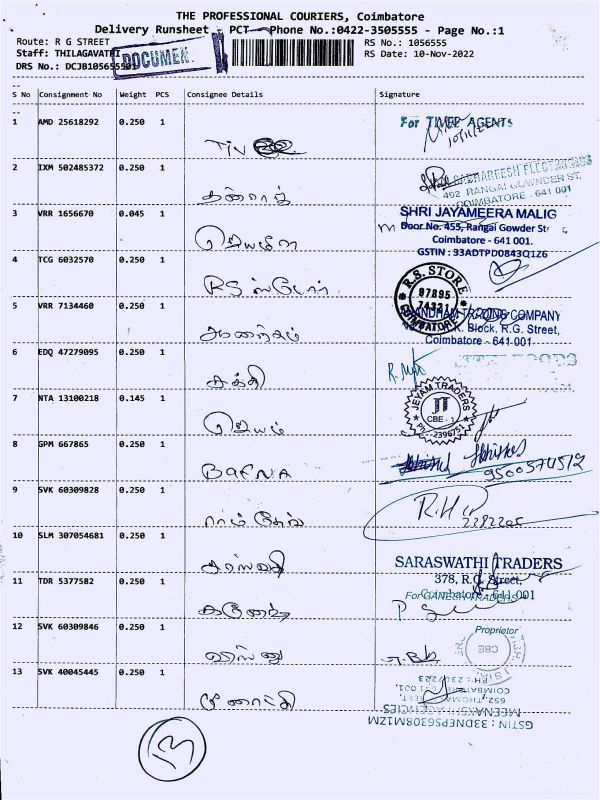 THE PROFESSIONAL COURIERS, Coimbatore
Delivery Runsheet - PCT Phone No.:0422-3505555 - Page No.:1
Route: R G STREET RS No.: 1056555
Staff: THILAGAVATHI RS Date: 10-Nov-2022
DRS No.: DCJB105655501 DOCUMEN
S No Consignment No Weight PCS Consignee Details Signature
1 AMD 25618292 0.250 1 For TIMEE AGENTS
10/11/22
TIN
2 IXM 502485372 0.250 1
492 RANGAI GOWNDER ST,
COIMBATORE - 641 001
3 VRR 1656670 0.045 1 SHRI JAYAMEERA MALIG
Door No. 455, Rangai Gowder St
ஜெயமீரா Coimbatore - 641 001.
GSTIN : 33ADTPD0843Q1Z6
4 TCG 6032570 0.250 1
RS ஸ்டோர் R.S. STORE
97895
74321
COIMBATORE
5 VRR 7134460 0.250 1 TRADING COMPANY
Block, R.G. Street,
Coimbatore - 641 001
6 EDQ 47279095 0.250 1
சக்தி
7 NTA 13100218 0.145 1 JEYAM TRADERS
JT
CBE - 1
ஜெயம்
8 GPM 667865 0.250 1
BAFNA 9500574512
9 SVK 60309828 0.250 1 R.H
2382205
ராம்தேவ்
10 SLM 307054681 0.250 1
SARASWATHI TRADERS
378, R.G. Street,
சரஸ்வதி Coimbatore - 641 001
11 TDR 5377582 0.250 1 For GANESH TRADERS
கணேஷ்
Proprietor
12 SVK 60309846 0.250 1 CBE
விஷ்ணு
13 SVK 40045445 0.250 1
மீனாட்சி
MEENAKSHI AGENCIES
GSTIN : 33DNEPS6308M1ZM
13